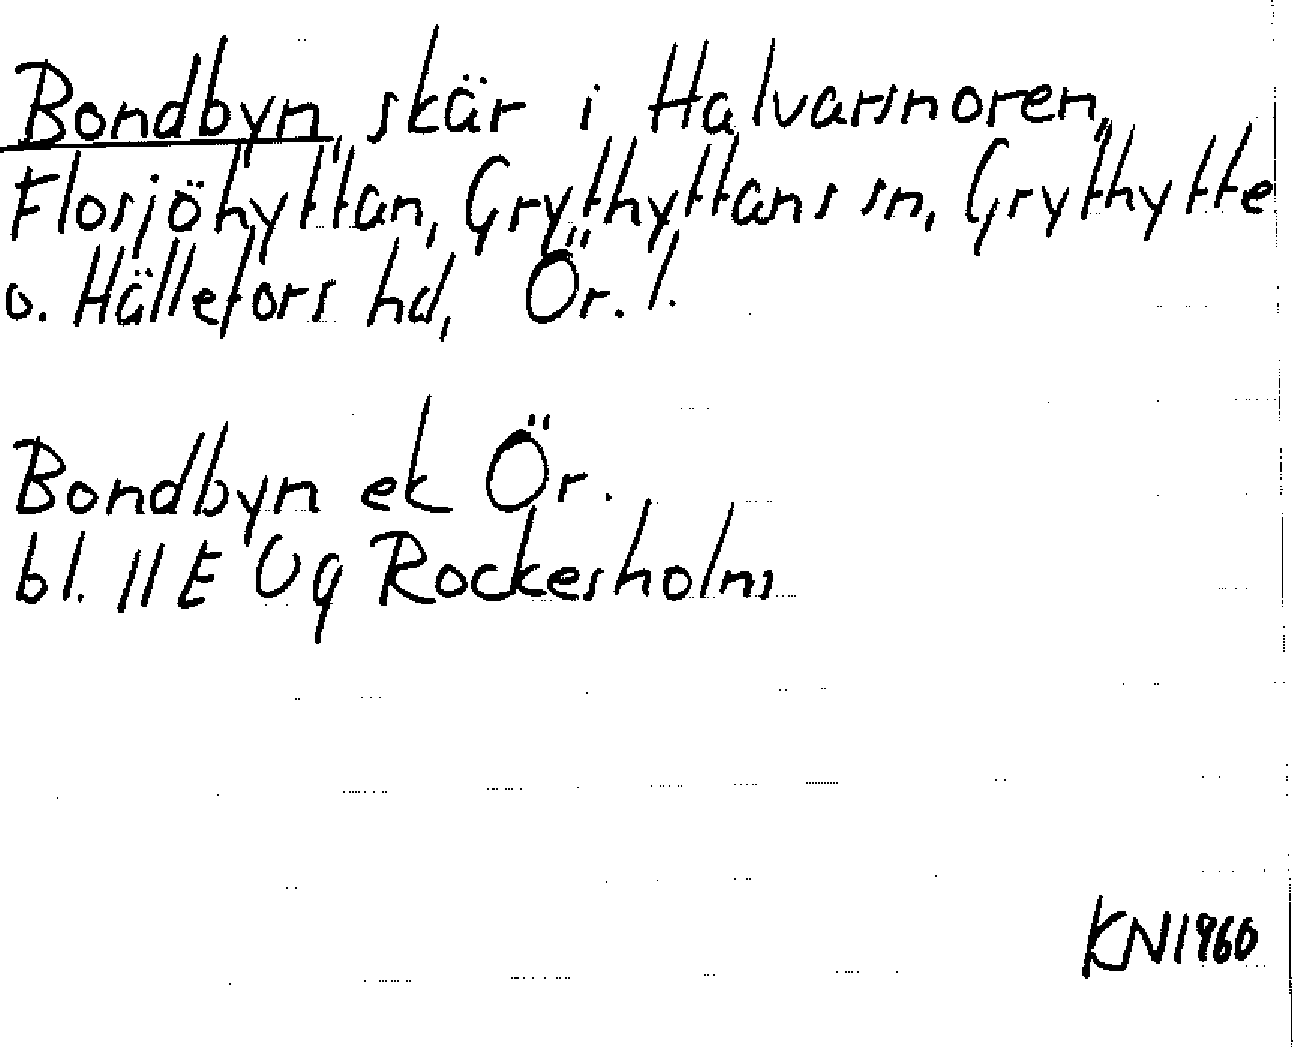 Bondbyn, skär i Halvarsnoren,
Flosjöhyttan, Grythyttans sn, Grythytte
o. Hällefors hd, Ör. l.
Bondbyn ek Ör.
bl. 11 E Ug Rockesholm
KN 1960